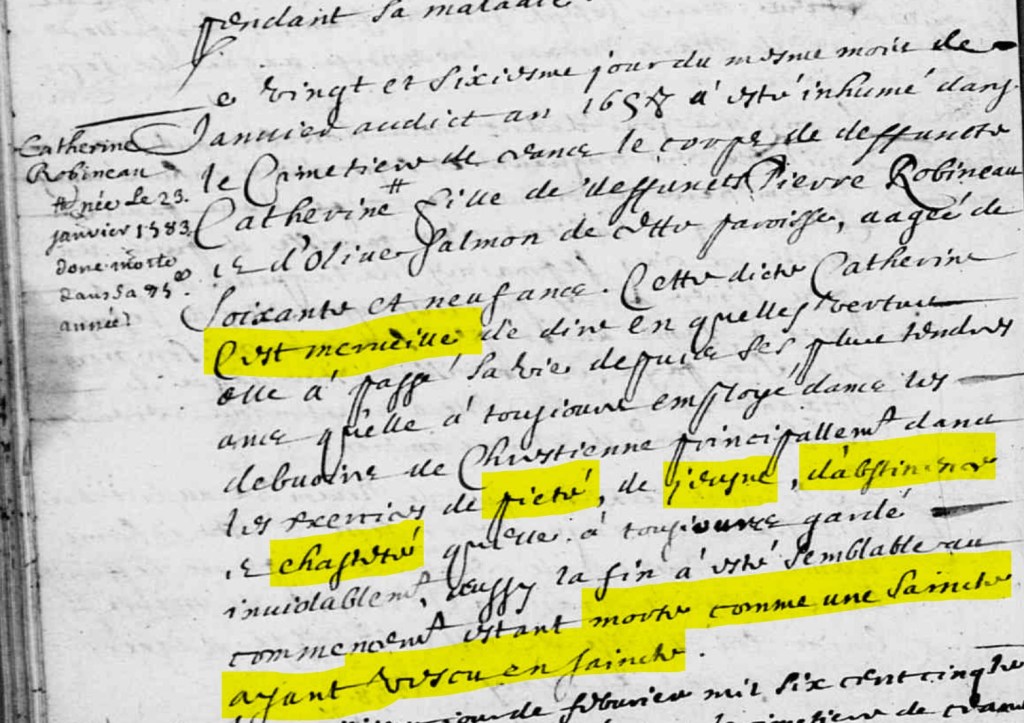 pendant sa maladie
Le vingt et sixiesme jour du mesme mois de
Janvier audict an 1658 a esté inhumé dans
le Cimetiere de ceans le corps de deffuncte
Catherine # fille de deffuncts Pierre Robineau
et d'Olive Salmon de cette paroisse, aageé de
Soixante et neuf ans. Cette dicte Catherine
C'est merveille de dire en quelles vertus
elle à passé sa vie depuis ses plus tendres
ans qu'elle à tousjours employé dans les
debvoirs de Chrestienne principallemt dans
les exercices de pieté, de jeusne, d'abstinence
et chasteté qu'elle à tousjours gardé
inviolablemt, aussy la fin à esté semblable au
commencemt estant morte comme une Saincte
ayant vescu en saincte.
jour de febvrier mil six cent cinqte
cimetiere de ceans
Catherine
Robineau
# née le 23.
janvier 1583
donc morte
dans sa 75e
année!